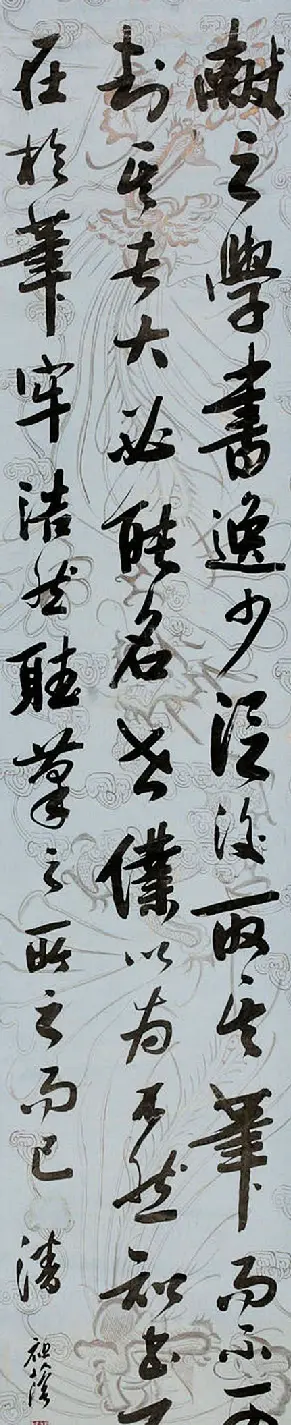 獻之學書逸少從後取其筆而不可
其長大必能名世僕以為不然知書不
在於筆牢浩然聽筆之所之而已 潘祖蔭